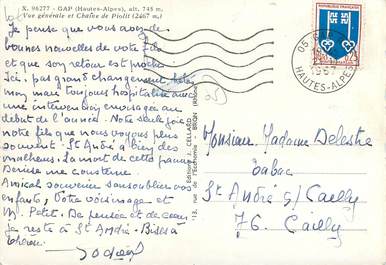 X. 96277 - GAP (Hautes-Alpes), alt. 745 m.
Vue générale et Chaîne de Piolit (2467 m.)
Je pense que vous avez de
bonnes nouvelles de votre fils
et que son retour est proche
Ici, pas grand changement, hélas
mon mari toujours hospitalisé
une intervention envisagée au
début de l'année. Notre seule joie
notre fils que nous voyons plus
souvent. St André a bien des
malheurs. La mort de cette pauvre
Denise me consterne.
Amical souvenir sans oublier vos
enfants, votre voisinage et
M. Petit. De pensée et de cœur
Je reste à St André. Bises à
Monsieur, Madame Delestre
Tabac
St André s/ Cailly
76. Cailly
REPUBLIQUE FRANÇAISE
05 G
1967
HAUTES-ALPES
Editions CELLARD